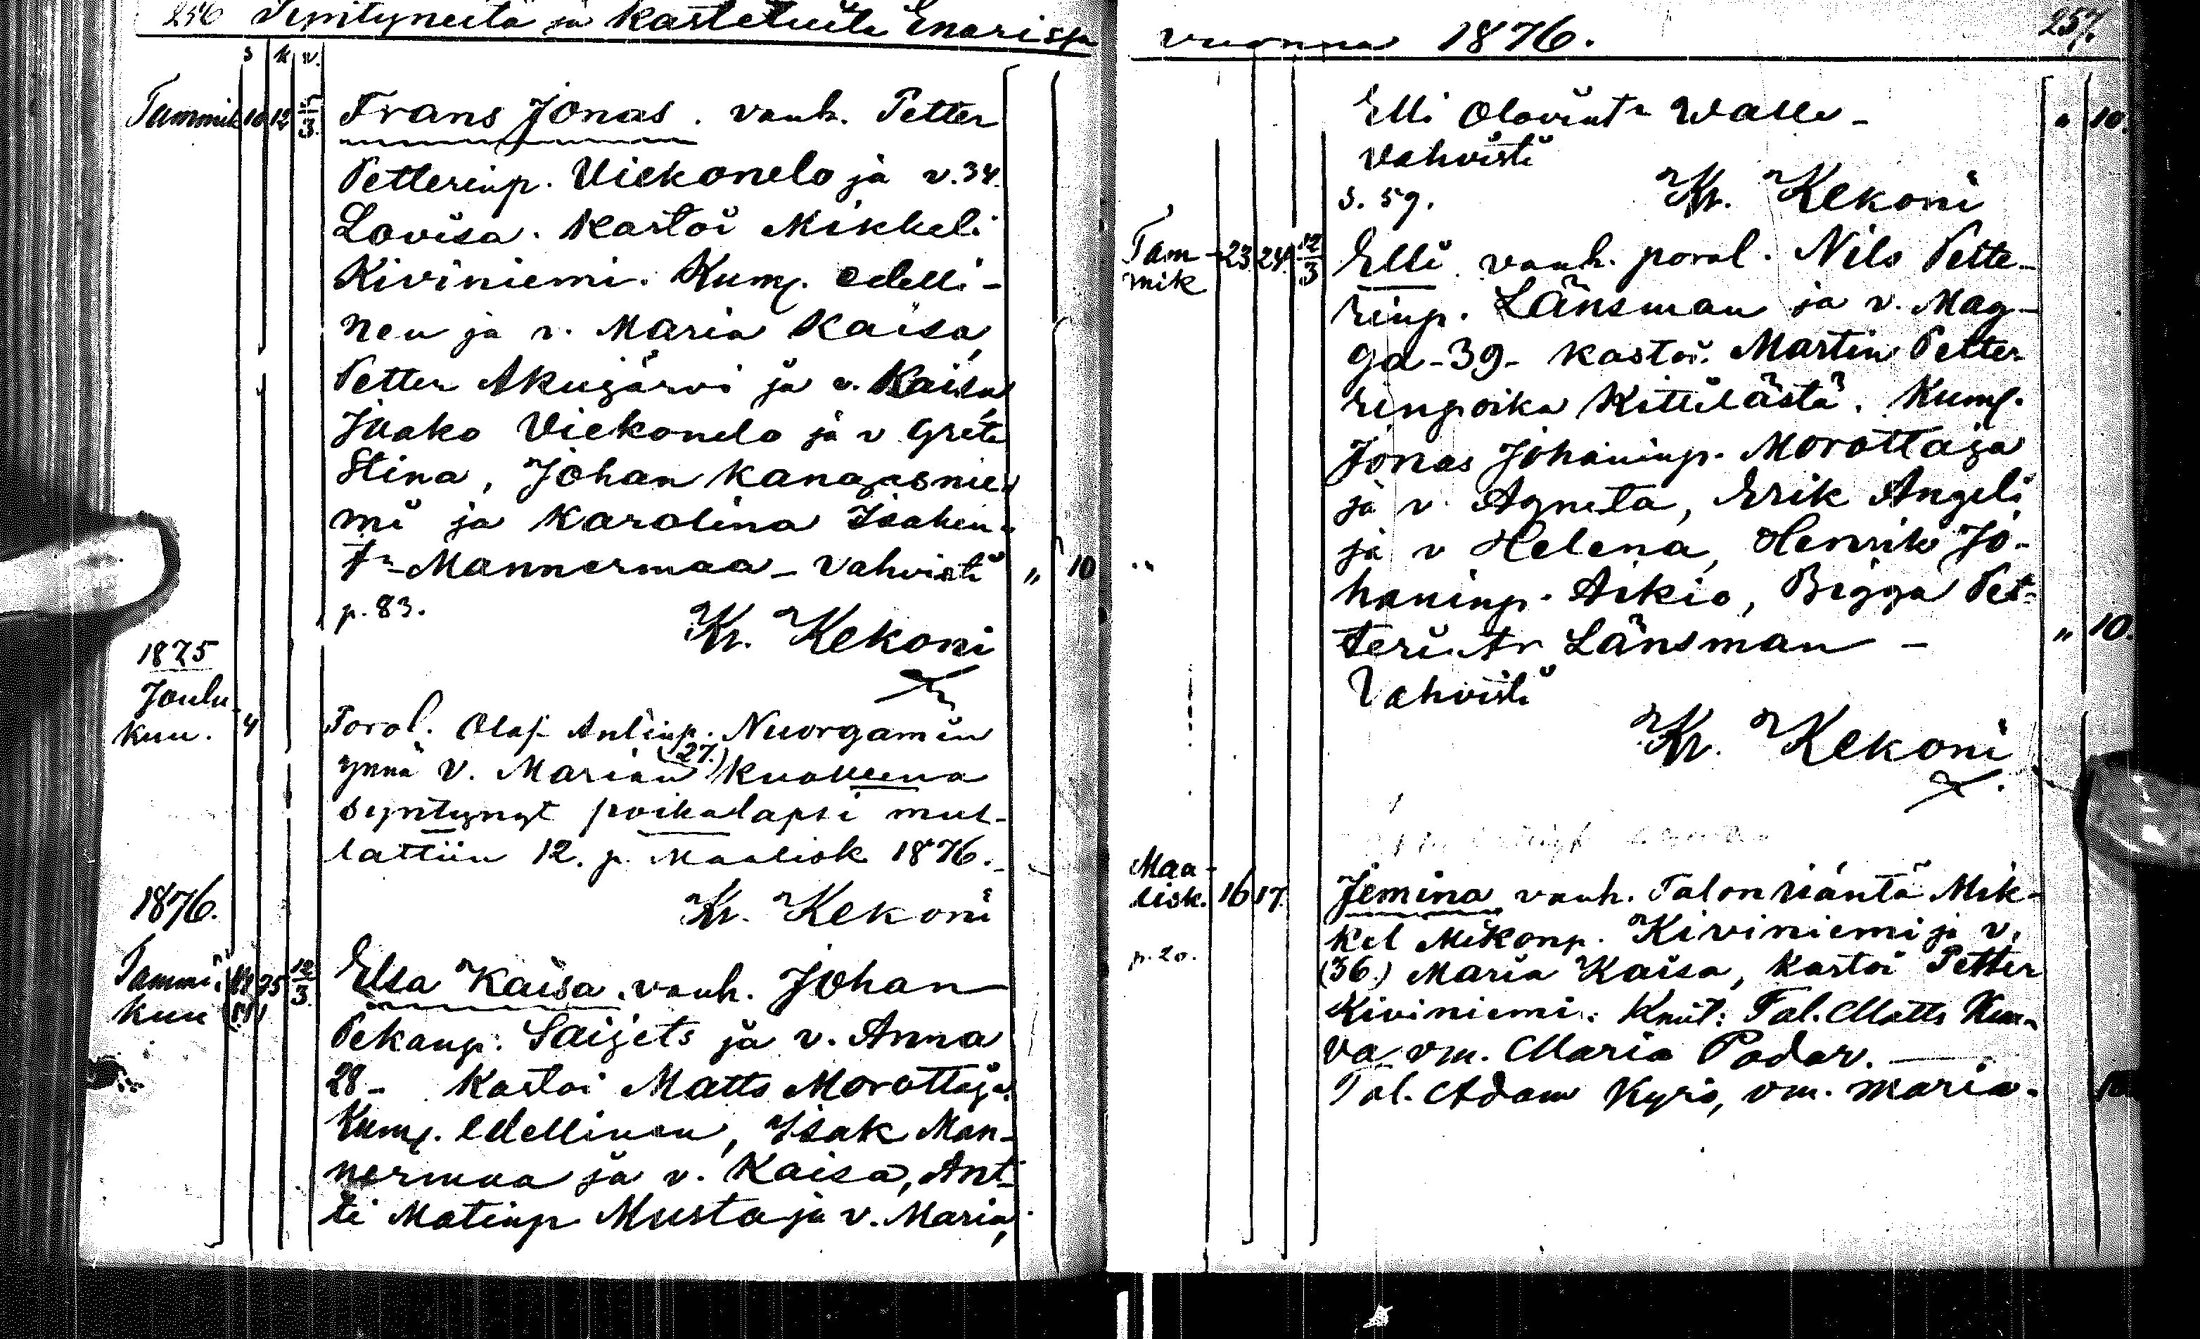 256 Syntyneitä ja Kastetuita Enarissa
s k v.
Tammik 10 12 5/3 Frans Jonas. vanh. Petter
Petterinp. Viekonelo ja v. 34.
Lovisa. Kastoi Mikkeli
Kiviniemi. Kum. edelli-
nen ja v. Maria Kaisa,
Petter Akujärvi ja v. Kaisa
Jaako Viekonelo ja v Greta
Stina, Johan Kangasnie-
mi ja Karolina Isakin
tr Mannermaa - Vahvisti " 10
p. 83.
Kr. Kekoni
1875
Joulu
kuu. 4 Porol. Olaf Antinp. Nuorgamin
ynnä v. Marian (27.) kuolleena
syntynyt poikalapsi mul-
lattiin 12. p. Maalisk 1876.
Kr. Kekoni
1876.
Tammi
kuu 25 12/3 Elsa Kaisa. vanh. Johan
Pekanp. Saijets ja v. Anna
28- Kastoi Matts Morottaja
Kum. Edellinen, Isak Man-
nermaa ja v. Kaisa, Ant-
ti Matinp Musta ja v. Maria,
vuonna 1876. 257.
Elli Olavint. Walle - " 10.
Vahvisti
s. 59. Kr. Kekoni
Tam-
mik 23 24 12/3 Elli vanh. porol. Nils Pette-
rinp. Länsman ja v. Mag-
ga - 39 - kastoi. Martin Petter
rinpoika Kittilästä. Kum.
Jonas Johaninp. Morottaja
ja v. Agneta, Erik Angeli
ja v Helena, Henrik Jo-
haninp. Aikio, Bigga Pet-
terintr Länsman - " 10.
Vahvisti
Kr. Kekoni
Maa-
lisk. 16 17. Jemina vanh. Talon isäntä Mik-
kel Mikonp. Kiviniemi ja v.
p. 20. (36.) Maria Kaisa, kastoi Petter
Kiviniemi: Kmit: Tal. Matts Kuu-
va vm. Maria Padar.
Tal. Adam Kyrö, vm. Maria. 10